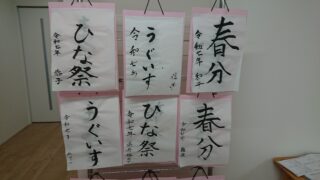 春分
令和七年 和子
うぐいす
令和七年
ひな祭
令和七年
春分
令和七年
ひな祭
令和七年
うぐいす
令和七年